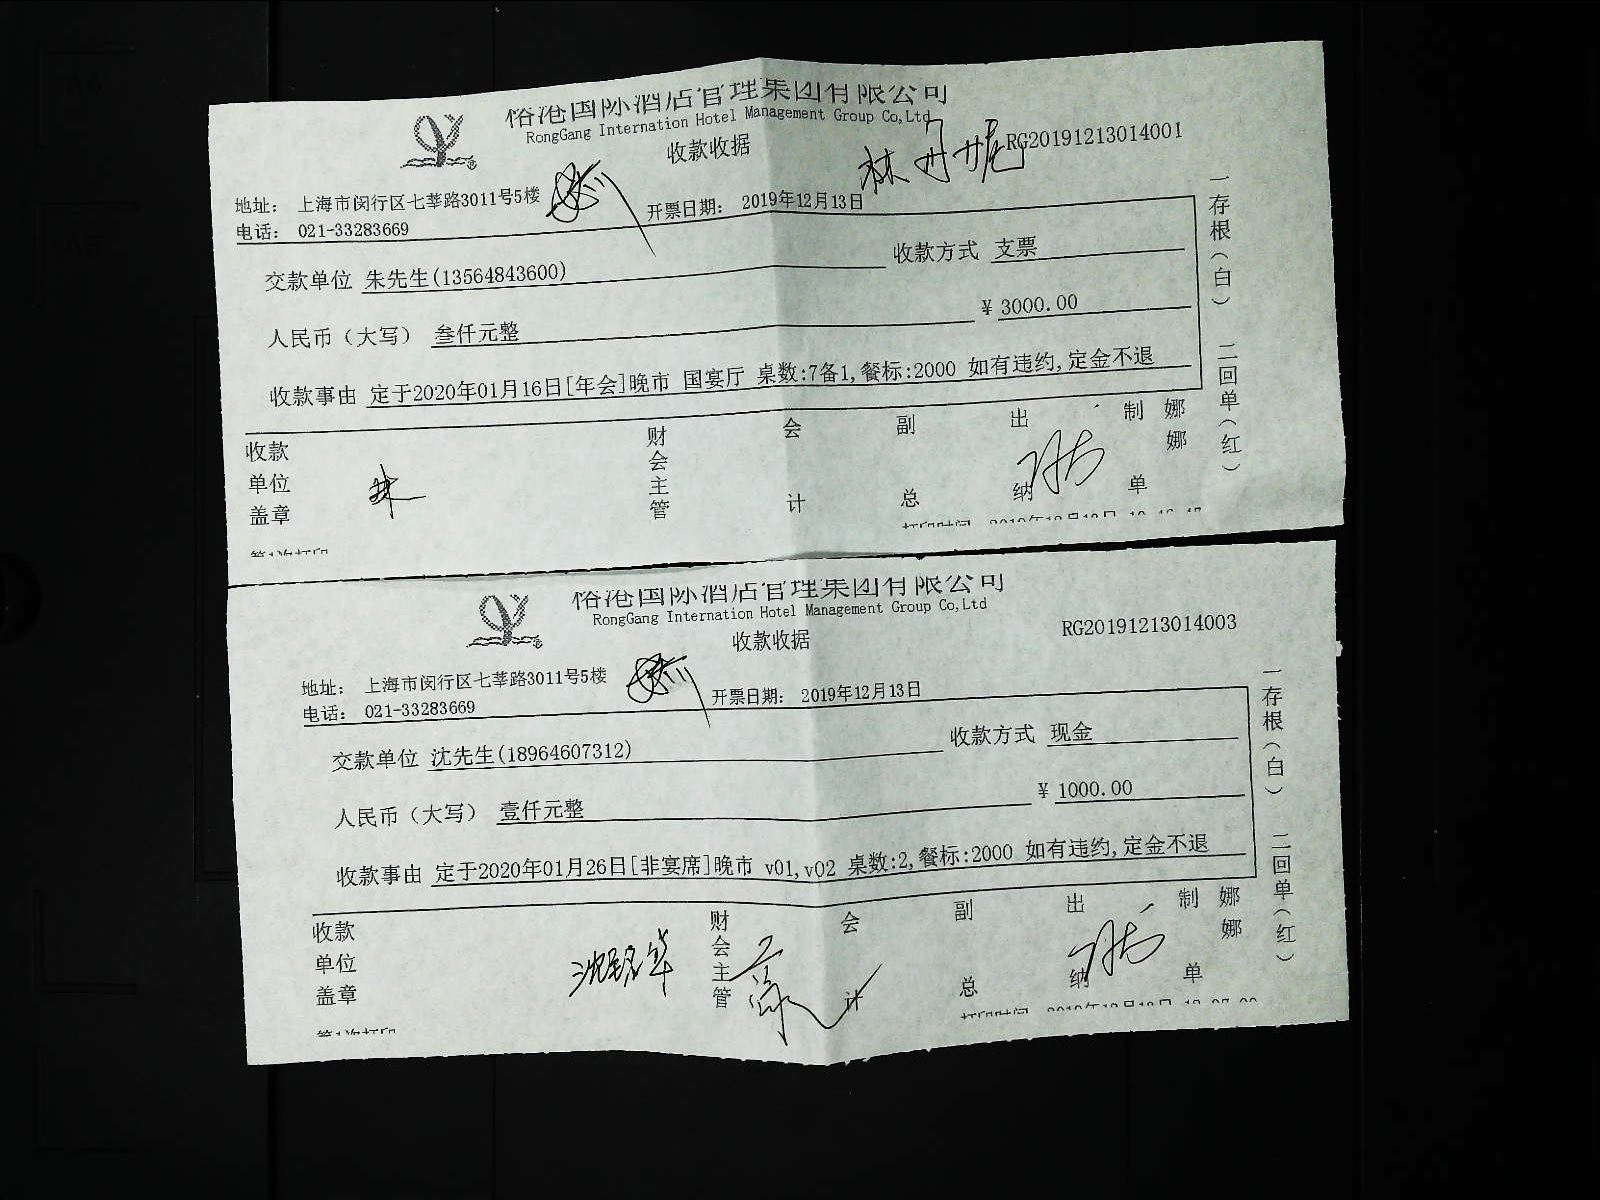 裕港国际酒店管理集团有限公司
RongGang Internation Hotel Management Group Co,Ltd
收款收据
林丹妮
RG20191213014001
地址： 上海市闵行区七莘路3011号5楼
开票日期： 2019年12月13日
电话： 021-33283669
交款单位 朱先生(13564843600)
收款方式 支票
人民币（大写） 叁仟元整
¥ 3000.00
收款事由 定于2020年01月16日[年会]晚市 国宴厅 桌数:7备1,餐标:2000 如有违约,定金不退
收款单位盖章
朱
财会主管
会计
副总
出纳
制单
娜娜
一存根（白） 二回单（红）
第1次打印
打印时间
裕港国际酒店管理集团有限公司
RongGang Internation Hotel Management Group Co,Ltd
收款收据
RG20191213014003
地址： 上海市闵行区七莘路3011号5楼
开票日期： 2019年12月13日
电话： 021-33283669
交款单位 沈先生(18964607312)
收款方式 现金
人民币（大写） 壹仟元整
¥ 1000.00
收款事由 定于2020年01月26日[非宴席]晚市 v01,v02 桌数:2,餐标:2000 如有违约,定金不退
收款单位盖章
财会主管
会计
副总
出纳
制单
娜娜
一存根（白） 二回单（红）
第1次打印
打印时间